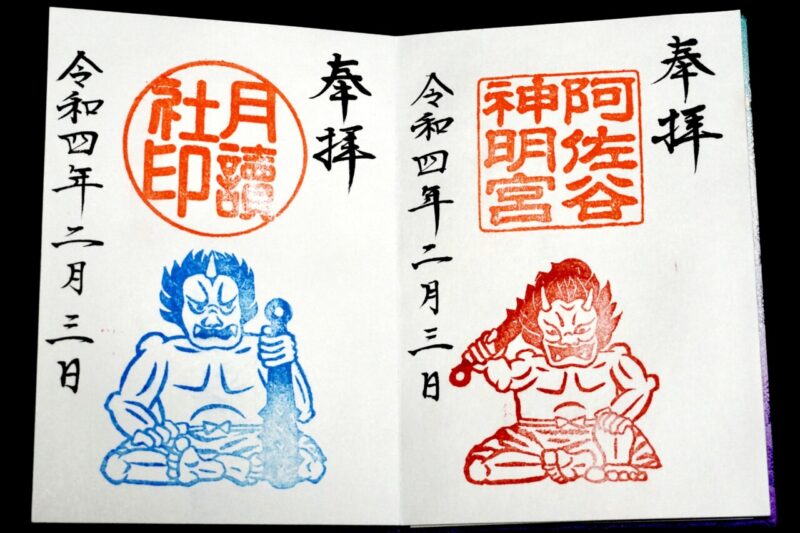 奉拝
阿佐谷
神明宮
令和四年二月三日
奉拝
月讀
社印
令和四年二月三日